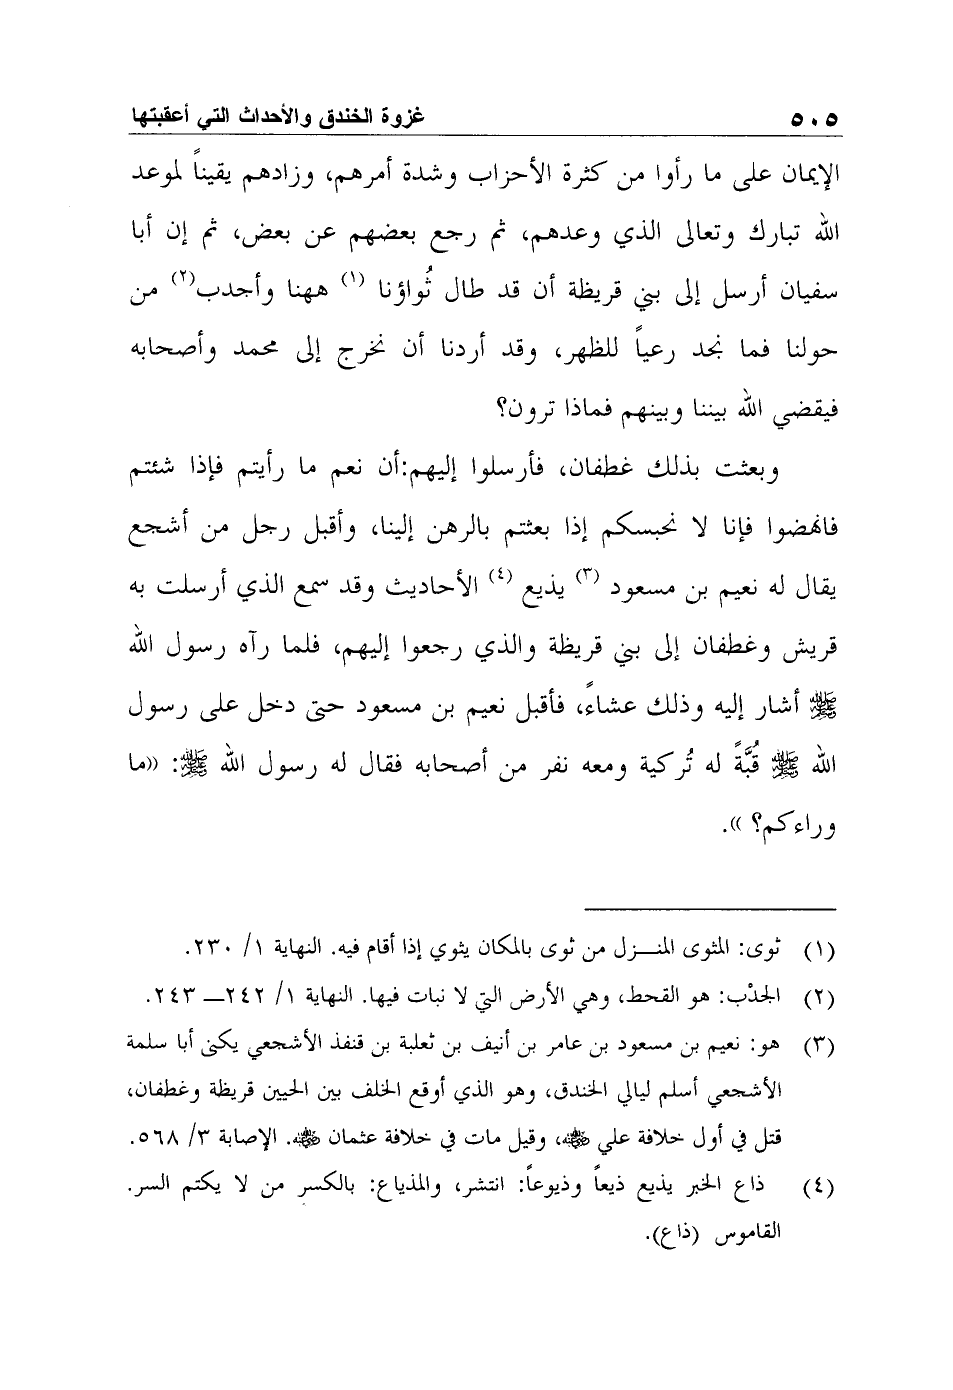 ٥٠٥ غزوة الخندق والأحداث التي أعقبتها
الإيمان على ما رأوا من كثرة الأحزاب وشدة أمرهم، وزادهم يقيناً لموعد
الله تبارك وتعالى الذي وعدهم، ثم رجع بعضهم عن بعض، ثم إن أبا
سفيان أرسل إلى بني قريظة أن قد طال ثُواؤنا (١) ههنا وأجدب(٢) من
حولنا فما نجد رعياً للظهر، وقد أردنا أن نخرج إلى محمد وأصحابه
فيقضي الله بيننا وبينهم فماذا ترون؟
وبعثت بذلك غطفان، فأرسلوا إليهم:أن نعم ما رأيتم فإذا شئتم
فانهضوا فإنا لا نحبسكم إذا بعثتم بالرهن إلينا، وأقبل رجل من أشجع
يقال له نعيم بن مسعود (٣) يذيع (٤) الأحاديث وقد سمع الذي أرسلت به
قريش وغطفان إلى بني قريظة والذي رجعوا إليهم، فلما رآه رسول الله
ﷺ أشار إليه وذلك عشاءً، فأقبل نعيم بن مسعود حتى دخل على رسول
الله ﷺ قُبَّةً له تُركية ومعه نفر من أصحابه فقال له رسول الله ﷺ: ((ما
وراءكم؟ )).
(١) ثوى: المثوى المنـــزل من ثوى بالمكان يثوي إذا أقام فيه. النهاية ١/ ٢٣٠.
(٢) الجدْب: هو القحط، وهي الأرض التي لا نبات فيها. النهاية ١/ ٢٤٢ــ ٢٤٣.
(٣) هو: نعيم بن مسعود بن عامر بن أنيف بن ثعلبة بن قنفذ الأشجعي يكنى أبا سلمة
الأشجعي أسلم ليالي الخندق، وهو الذي أوقع الخلف بين الحيين قريظة وغطفان،
قتل في أول خلافة علي ﷺ، وقيل مات في خلافة عثمان ﷺ. الإصابة ٣/ ٥٦٨.
(٤) ذاع الخبر يذيع ذيعاً وذيوعاً: انتشر، والمذياع: بالكسر من لا يكتم السر.
القاموس (ذاع).